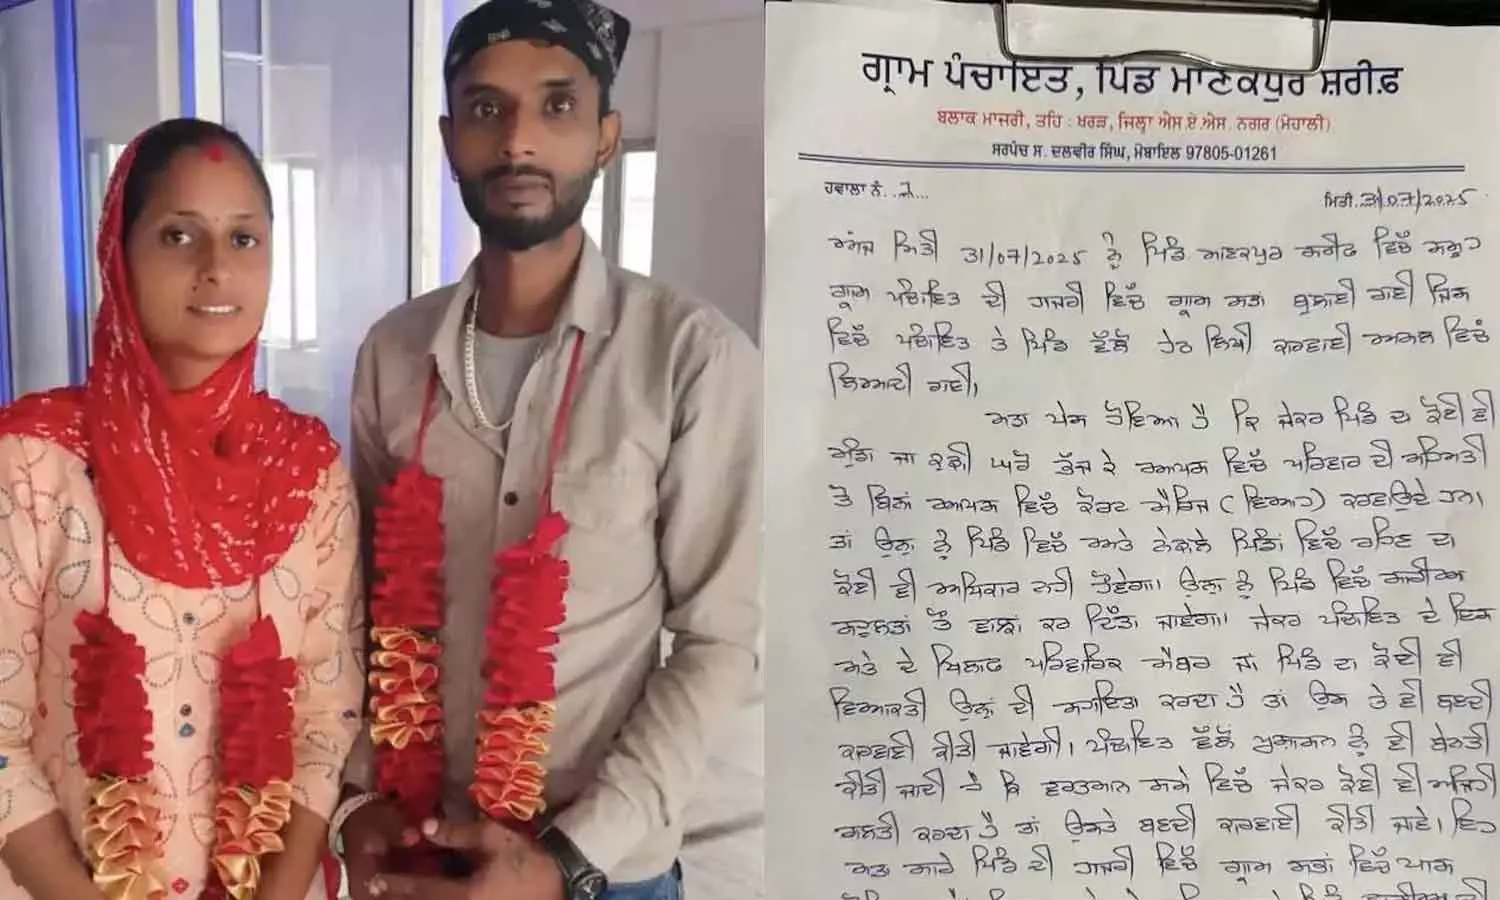 ਗ੍ਰਾਮ ਪੰਚਾਇਤ, ਪਿੰਡ ਮਾਣਕਪੁਰ ਸ਼ਰੀਫ਼
ਬਲਾਕ ਮਾਜਰੀ, ਤਹਿ : ਖਰੜ, ਜਿਲ੍ਹਾ ਐਸ.ਏ.ਐਸ. ਨਗਰ (ਮੋਹਾਲੀ)
ਸਰਪੰਚ ਸ. ਦਲਵੀਰ ਸਿੰਘ, ਮੋਬਾਇਲ 97805-01261
ਹਵਾਲਾ ਨੰ.
ਮਿਤੀ. 31/07/2025
ਅੱਜ ਮਿਤੀ 31/07/2025 ਨੂੰ ਪਿੰਡ ਮਾਣਕਪੁਰ ਸ਼ਰੀਫ ਵਿੱਚ ਸਮੂਹ
ਗ੍ਰਾਮ ਪੰਚਾਇਤ ਦੀ ਹਾਜਰੀ ਵਿੱਚ ਗ੍ਰਾਮ ਸਭਾ ਬੁਲਾਈ ਗਈ ਜਿਸ
ਵਿੱਚ ਪੰਚਾਇਤ ਤੇ ਪਿੰਡ ਵੱਲੋਂ ਹੇਠ ਲਿਖੀ ਕਾਰਵਾਈ ਅਮਲ ਵਿੱਚ
ਲਿਆਦੀ ਗਈ।
ਮਤਾ ਪੇਸ਼ ਹੋਇਆ ਹੈ ਕਿ ਜੇਕਰ ਪਿੰਡ ਦਾ ਕੋਈ ਵੀ
ਮੁੰਡਾ ਜਾਂ ਕੁੜੀ ਘਰੋਂ ਭੱਜ ਕੇ ਆਪਸ ਵਿੱਚ ਪਰਿਵਾਰ ਦੀ ਸਹਿਮਤੀ
ਤੋਂ ਬਿਨਾਂ ਆਪਸ ਵਿੱਚ ਕੋਰਟ ਮੈਰਿਜ (ਵਿਆਹ) ਕਰਵਾਉਂਦੇ ਹਨ।
ਤਾਂ ਉਨ੍ਹਾਂ ਨੂੰ ਪਿੰਡ ਵਿੱਚ ਅਤੇ ਨੇੜਲੇ ਪਿੰਡਾਂ ਵਿੱਚ ਰਹਿਣ ਦਾ
ਕੋਈ ਵੀ ਅਧਿਕਾਰ ਨਹੀ ਹੋਵੇਗਾ। ਉਨ੍ਹਾਂ ਨੂੰ ਪਿੰਡ ਵਿੱਚ ਸਾਰੀਆਂ
ਸਹੂਲਤਾਂ ਤੋਂ ਵਾਂਝਾ ਕਰ ਦਿੱਤਾ ਜਾਵੇਗਾ। ਜੇਕਰ ਪੰਚਾਇਤ ਦੇ ਇਸ
ਮਤੇ ਦੇ ਖਿਲਾਫ ਪਰਿਵਾਰਿਕ ਮੈਂਬਰ ਜਾਂ ਪਿੰਡ ਦਾ ਕੋਈ ਵੀ
ਵਿਅਕਤੀ ਉਨ੍ਹਾਂ ਦੀ ਸਹਾਇਤਾ ਕਰਦਾ ਹੈ ਤਾਂ ਉਸ ਤੇ ਵੀ ਬਣਦੀ
ਕਾਰਵਾਈ ਕੀਤੀ ਜਾਵੇਗੀ। ਪੰਚਾਇਤ ਵੱਲੋਂ ਪ੍ਰਸ਼ਾਸਨ ਨੂੰ ਵੀ ਬੇਨਤੀ
ਕੀਤੀ ਜਾਂਦੀ ਹੈ ਕਿ ਵਰਤਮਾਨ ਸਮੇਂ ਵਿੱਚ ਜੇਕਰ ਕੋਈ ਵੀ ਅਜਿਹੀ
ਗਲਤੀ ਕਰਦਾ ਹੈ ਤਾਂ ਉਸਤੇ ਬਣਦੀ ਕਾਰਵਾਈ ਕੀਤੀ ਜਾਵੇ। ਇਹ
ਮਤਾ ਸਾਰੇ ਪਿੰਡ ਦੀ ਹਾਜਰੀ ਵਿੱਚ ਗ੍ਰਾਮ ਸਭਾ ਵਿੱਚ ਪਾਸ